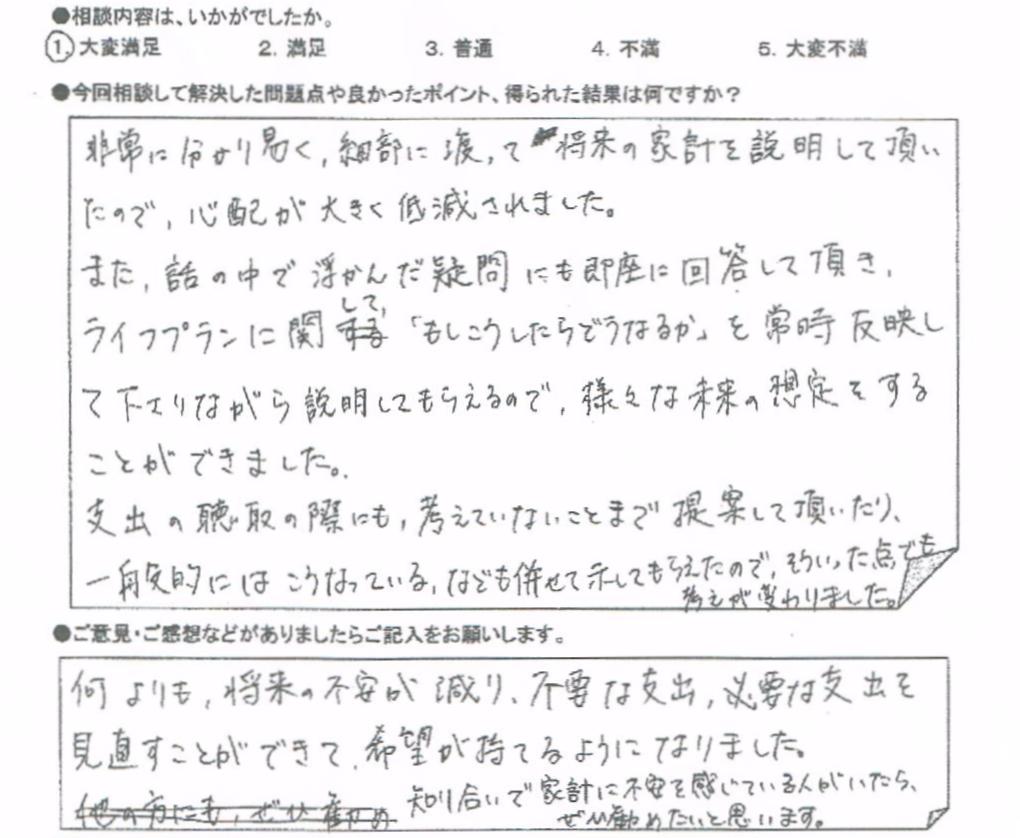 ●相談内容は、いかがでしたか。
1. 大変満足 2. 満足 3. 普通 4. 不満 5. 大変不満
●今回相談して解決した問題点や良かったポイント、得られた結果は何ですか？
非常に分かり易く、細部に渡って将来の家計を説明して頂い
たので、心配が大きく低減されました。
また、話の中で浮かんだ疑問にも即座に回答して頂き、
して、
ライフプランに関する「もしこうしたらどうなるか」を常時反映し
て下さりながら説明してもらえるので、様々な未来の想定をする
ことができました。
支出の聴取の際にも、考えていないことまで提案して頂いたり、
一般的にはこうなっている、なども併せて示してもらえたので、そういった点でも
考えが変わりました。
●ご意見・ご感想などがありましたらご記入をお願いします。
何よりも、将来の不安が減り、不要な支出、必要な支出を
見直すことができて、希望が持てるようになりました。
他の方にも、ぜひ勧め 知り合いで家計に不安を感じている人がいたら、
ぜひ勧めたいと思います。